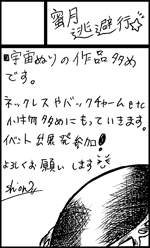 蜜月
逃避行☆
宇宙ぬりの作品タタめ
です。
ネックレスやバックチャームetc
小物タタめにもっていきます。
イベント出展発参加!
よろしくお願いします